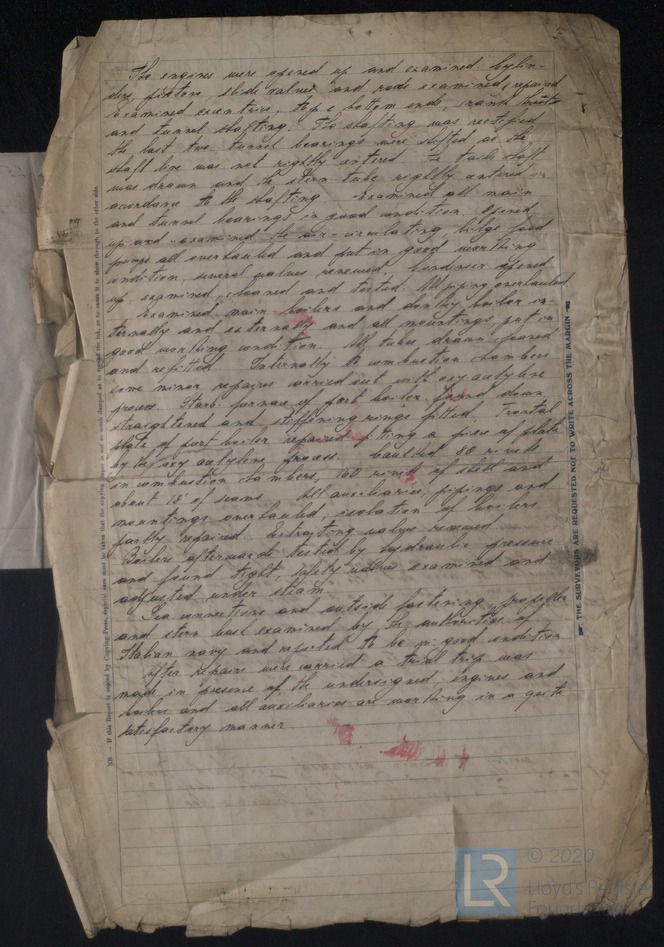 The engines were opened up and examined. Cylin-
ders, pistons, slide valves and rods examined, repaired
examined excentrics, top & bottom ends, crank
and tunnel shafting. The shafting was rectified
the last two tunnel bearings were shifted as the
shaft line was not rightly centered the tail shaft
was drawn and the stern tube rightly centered in
acordance to the shafting examined all main
and tunnel bearings in good condition. Opened
up and examined the air-circulating bilge feed
pumps all overhauled and put in good working
condition, several valves renewed. Condenser opened
up examined, cleaned and tested. All piping overhauled
Examined main boilers and donkey boiler in-
ternally and externally and all mountings, put in
good working condition. All tubes drawn cleaned
and refitted Internally the combustion chambers
some minor repaires carried out with oxy acetyline
proces. Starb. furnace of port boiler found down
straightened and stiffening rings fitted. Frontal
plate of port boiler repaired fitting a piece of plate
by the oxy acetyline process. Caulked 88 rivets
in combustion chambers, 160 rivets of shell and
about 18' of seams. All auxiliaries, pipings and
mountings overhauled, isolation of boilers
partly repaired
Boilers afterwards tested by hydraulic pressure
and found tight, safety valves examined and
adjusted under steam.
Sea connections and outside fastening, propeller
and stern bush examined by the authorities of
Italian navy and reported to be in good condition
After repairs were carried a trial trip was
made in presence of the undersigned, engines and
boilers and all auxiliaries are working in a quite
satisfactory manner
THE SURVEYORS ARE REQUESTED NOT TO WRITE ACROSS THE MARGIN
NB — If this Report is copied by Copying Press, special care must be taken that the copying paper is not so much damped as to spread the ink, or to cause it to show through to the other side.
LR
© 2020
Lloyd's Register
Foundation